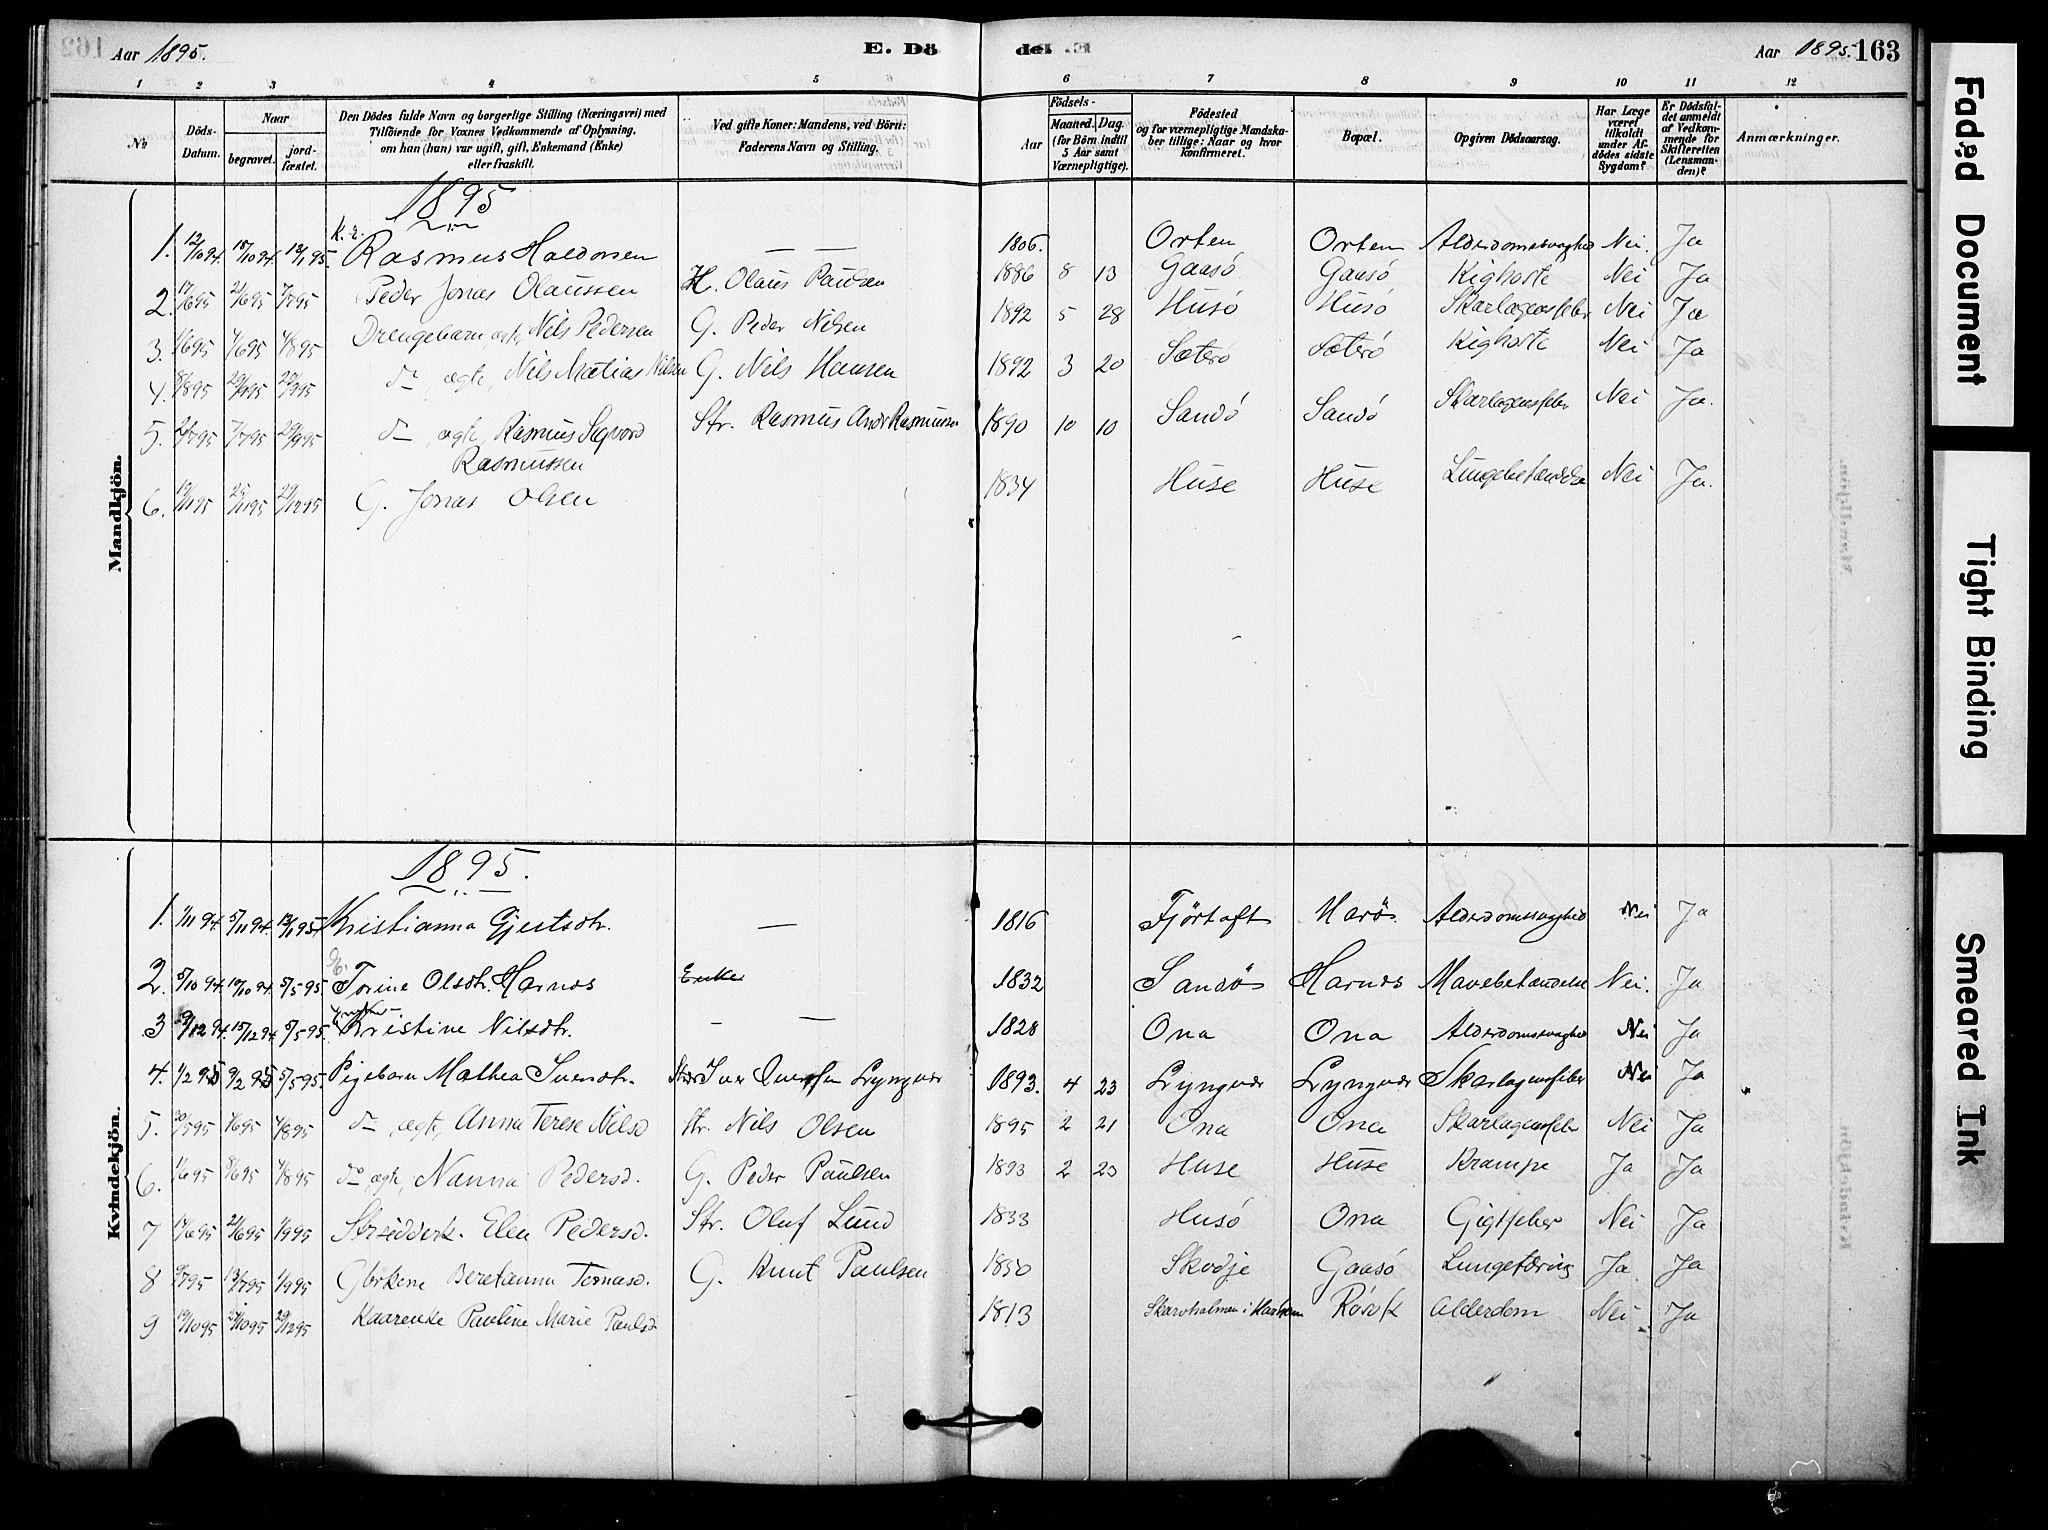 Aar 1895.
E. Dö
del
Aar 1895. 163
1 2 3 4 5 6 7 8 9 10 11 12
№
Döds-Datum.
Naar
begravet.
jord-fæstet.
Den Dödes fulde Navn og borgerlige Stilling (Næringsvei) med
Tilföiende for Voxnes Vedkommende af Oplysning,
om han (hun) var ugift, gift, Enkemand (Enke)
eller fraskilt.
Ved gifte Koner: Mandens, ved Börn:
Faderens Navn og Stilling.
Aar
Födsels-
Maaned. Dag.
(for Börn indtil
5 Aar samt
Værnepligtige).
Födested
og for værnepligtige Mandska-
ber tillige: Naar og hvor
konfirmeret.
Bopæl.
Opgiven Dödsaarsag.
Har Læge
været
tilkaldt
under Af-
dödes sidste
Sygdom?
Er Dödsfal-
det anmeldt
af Vedkom-
mende for
Skifteretten
(Lensman-
den)?
Anmærkninger.
Mandkjön.
1895
1. 12/10 94. 18/10 94. 12/1 95. Rasmus Haldorsen — — 1806. Orten Orten Alderdomssvaghed Nei. Ja
2. 17/6 95 21/6 95 7/7 95 Peder Jonas Olaussen H. Olaus Paulsen 1886 8 13 Gaasö Gaasö Kighoste Nei Ja
3. 1/6 95 7/6 95 4/8 95 Drengebarn ægte, Nils Pedersen G. Peder Nilsen 1892 5 28 Husö Husö Skarlagensfeber Nei Ja
4. 8/8 95 29/9 95 do ægte, Nils Matias Nilsen G. Nils Hansen 1892 3 20 Sæterö Sæterö Kighoste Nei Ja
5. 7/7 95 29/9 95 do ægte, Rasmus Sigvard
Rasmussen Str. Rasmus Andr Rasmussen 1890 10 10 Sandö Sandö Skarlagensfeber Nei Ja.
6. 19/11 95 25/11 95 29/12 95 G. Jonas Olsen 1834 Huse Huse Lungebetændelse Nei Ja.
Kvindekjön.
1895.
1. 1/11 94. 5/11 94. 12/1 95. Kristianna Gjertsdtr. — 1816 Fjörtoft Harö Alderdomssvaghed Nei Ja
2. 5/10 94. 10/10 94. 5/5 95 Torine Olsdtr. Harnes Enke 1832 Sandö Harnes Mavebetændelse Nei. Ja
3 9/12 94. 15/12 94. 5/5 95. Kristine Nilsdtr. - — 1828 Ona Ona Alderdomssvaghed Nei Ja
4. 1/2 95 9/2 95 5/5 95 Pigebarn Mathea Iversdtr. Iver Iversen Lyngvær 1893. 4 23 Lyngvær Lyngvær Skarlagensfeber Nei Ja
5. 30/5 95 1/6 95 4/8 95 do ægte, Anna Terese Nilsd Str. Nils Olsen 1895 2 21 Ona Ona Skarlagensfeber Nei Ja
6. 1/6 95 8/6 95 4/8 95 do ægte, Nanna Pedersd. G. Peder Paulsen 1893 2 23 Huse Huse Krampe Ja Ja
7 17/6 95 21/6 95 1/9 95 Elen Pedersd. Str. Oluf Lund 1833 Husö Ona Gigtfeber Nei Ja
8 9/7 95 13/7 95 1/9 95 Gbrkone Beretanna Tomasd. G. Knut Paulsen 1850 Skodje Gaasö Lungetæring Ja. Ja
9 19/10 95 29/12 95 Kaarenke Pauline Marie Paulsd 1813 Skarvholmen i Rösok Alderdom Nei Ja
Faded Document
Tight Binding
Smeared Ink